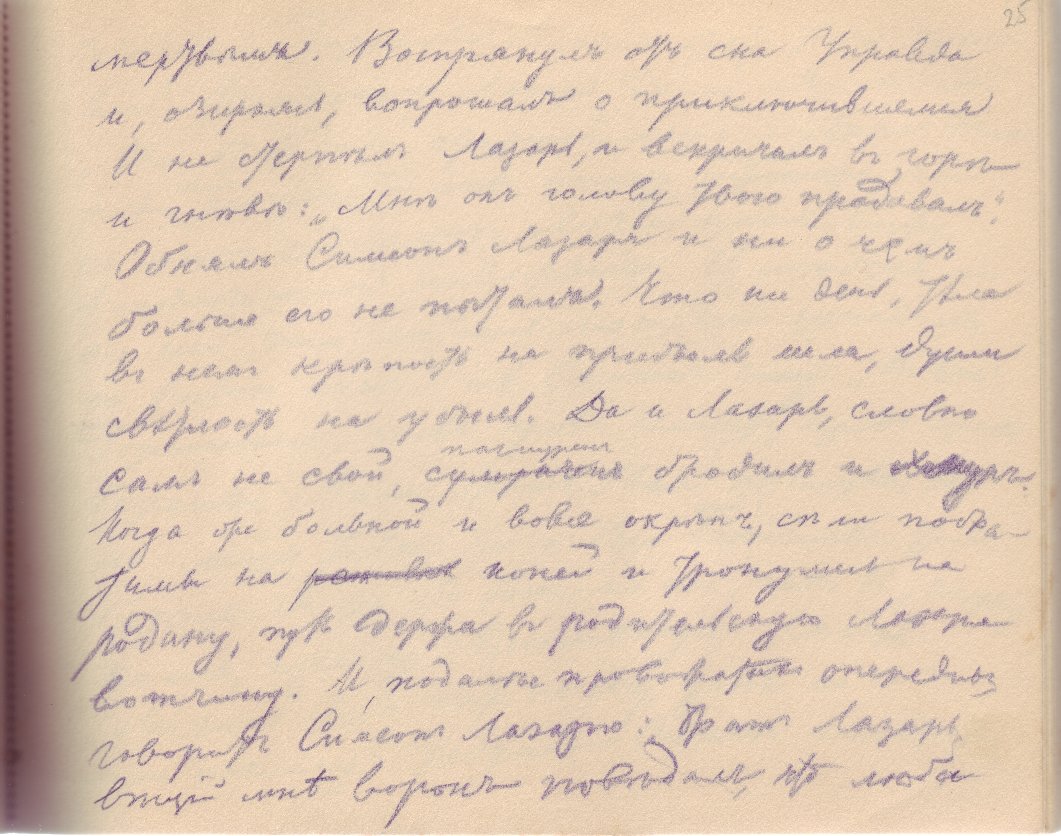 25
мертвымъ. Вспрянулъ отъ сна Управда
и, озираясь, вопрошалъ о приключившемся
И не стерпѣлъ Лазарь, и вскричалъ въ горѣ
и гнѣвѣ: „Мнѣ онъ голову твою продавалъ“.
Обнялъ Симеонъ Лазаря и ни о чемъ
больше его не пыталъ. Что ни день, шла
въ немъ крѣпость на прибыль тѣла, души
свѣтлость на убыль. Да и Лазарь, словно
самъ не свой, пасмуренъ бродилъ и
Когда же больной и вовсе окрѣпъ, сѣли побра-
тимы на коней и тронулись на
родину, путь держа въ родительскую Лазаря
вотчину. И, подалѣе провожатыхъ опередивъ
говоритъ Симеонъ Лазарю: „Братъ Лазарь,
вѣщій мнѣ воронъ повѣдалъ, что любы